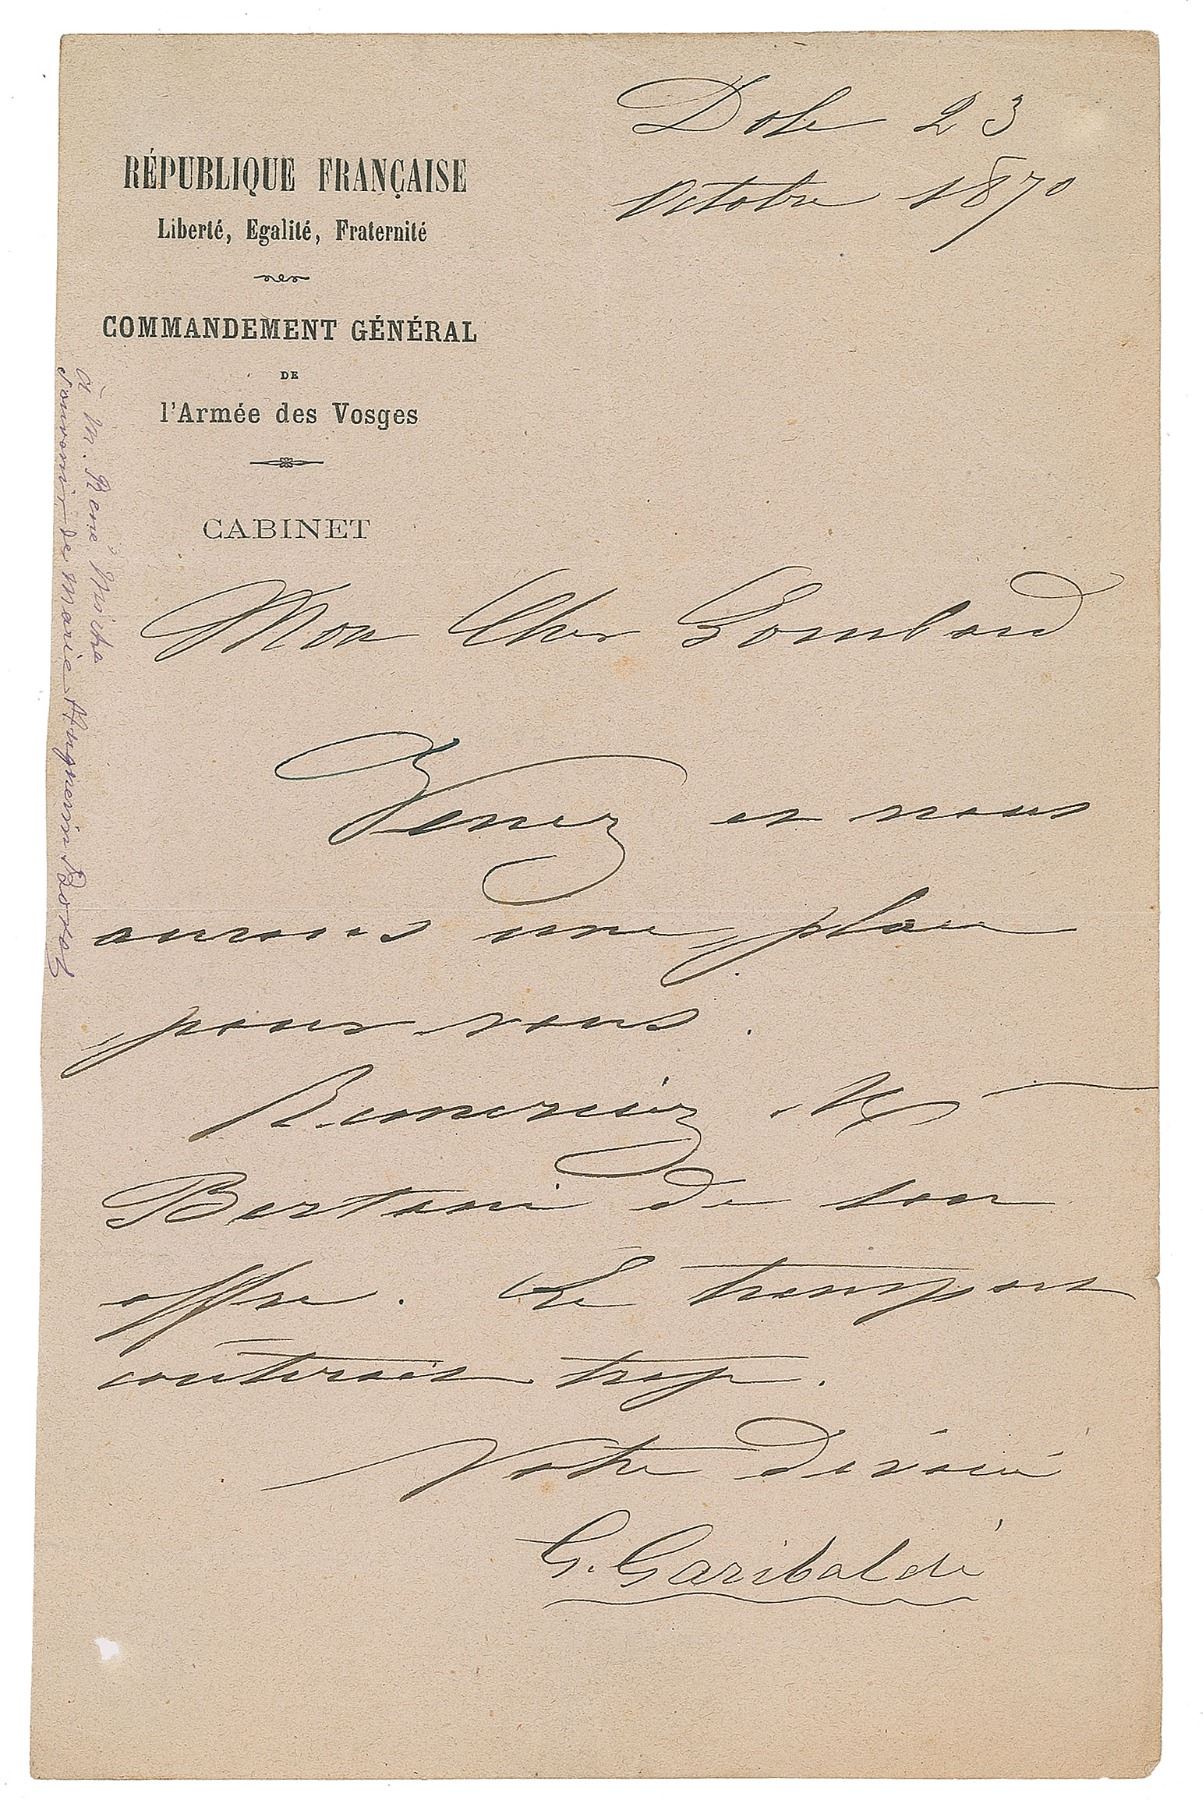 Dole 23
Octobre 1870
RÉPUBLIQUE FRANÇAISE
Liberté, Egalité, Fraternité
COMMANDEMENT GÉNÉRAL
DE
l'Armée des Vosges
CABINET
Mon Cher Gombaud
Venez et nous
aurons une place
pour vous.
Remerciez Mr
Bertani de son
offre. Le transport
coûterait trop.
Votre dévoué
G. Garibaldi
à M. René
Souvenir de Marie Huguenin